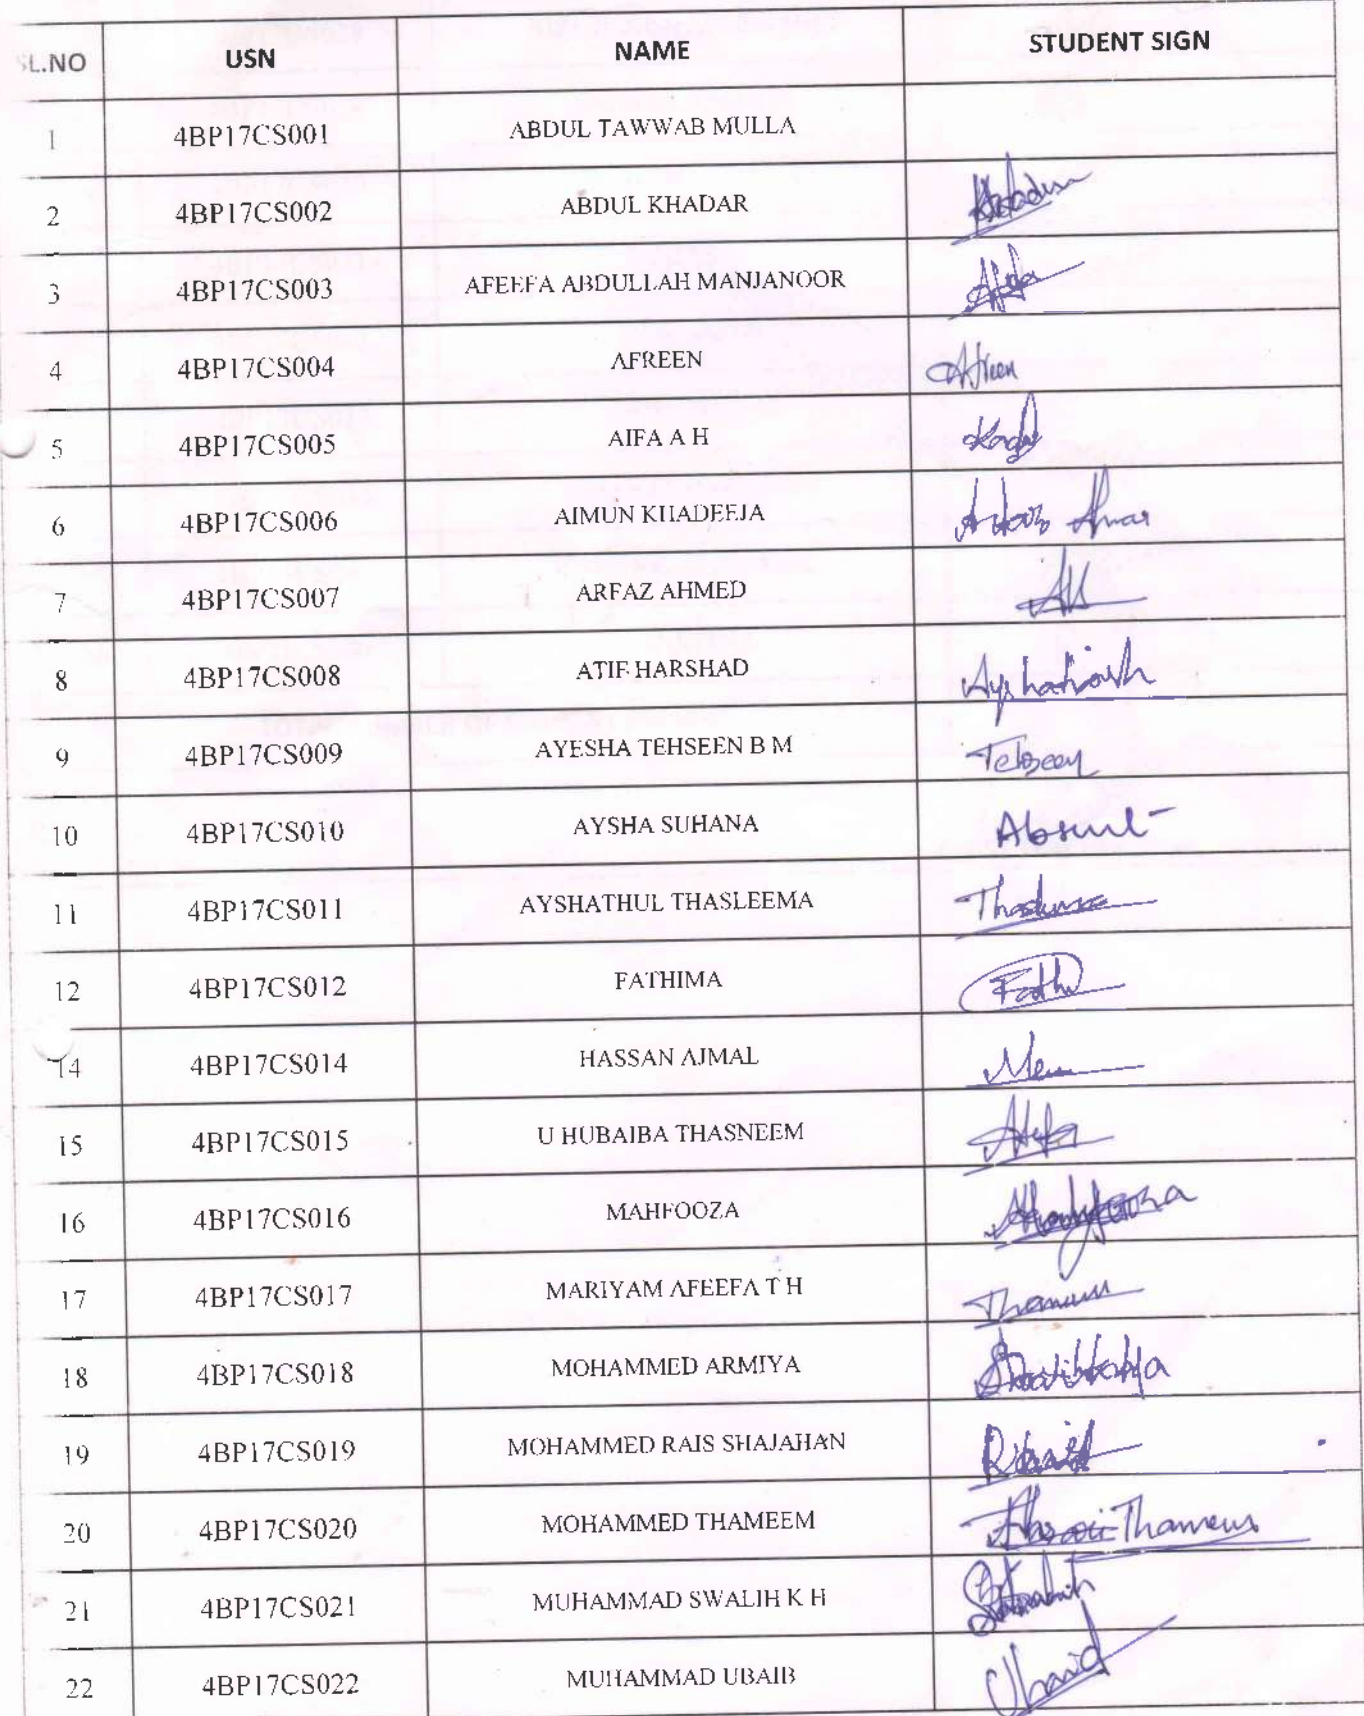 SL.NO USN NAME STUDENT SIGN
1 4BP17CS001 ABDUL TAWWAB MULLA
2 4BP17CS002 ABDUL KHADAR
3 4BP17CS003 AFEEFA ABDULLAH MANJANOOR
4 4BP17CS004 AFREEN Afreen
5 4BP17CS005 AIFA A H
6 4BP17CS006 AIMUN KHADEEJA
7 4BP17CS007 ARFAZ AHMED
8 4BP17CS008 ATIF HARSHAD
9 4BP17CS009 AYESHA TEHSEEN B M Tehseen
10 4BP17CS010 AYSHA SUHANA Absent
11 4BP17CS011 AYSHATHUL THASLEEMA
12 4BP17CS012 FATHIMA
14 4BP17CS014 HASSAN AJMAL
15 4BP17CS015 U HUBAIBA THASNEEM
16 4BP17CS016 MAHFOOZA
17 4BP17CS017 MARIYAM AFEEFA T H
18 4BP17CS018 MOHAMMED ARMIYA
19 4BP17CS019 MOHAMMED RAIS SHAJAHAN
20 4BP17CS020 MOHAMMED THAMEEM
21 4BP17CS021 MUHAMMAD SWALIH K H
22 4BP17CS022 MUHAMMAD UBAIB